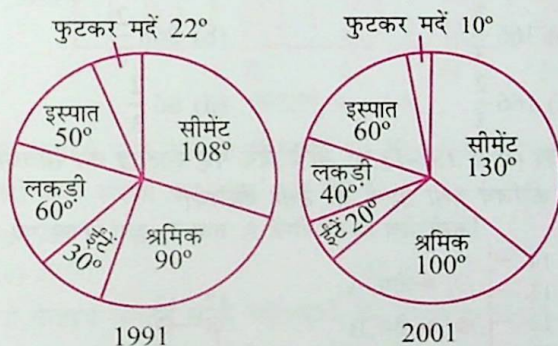 फुटकर मदें 22°
इस्पात
50°
सीमेंट
108°
लकड़ी
60°
ईंटें
30°
श्रमिक
90°
1991
फुटकर मदें 10°
इस्पात
60°
सीमेंट
130°
लकड़ी
40°
ईंटें 20°
श्रमिक
100°
2001